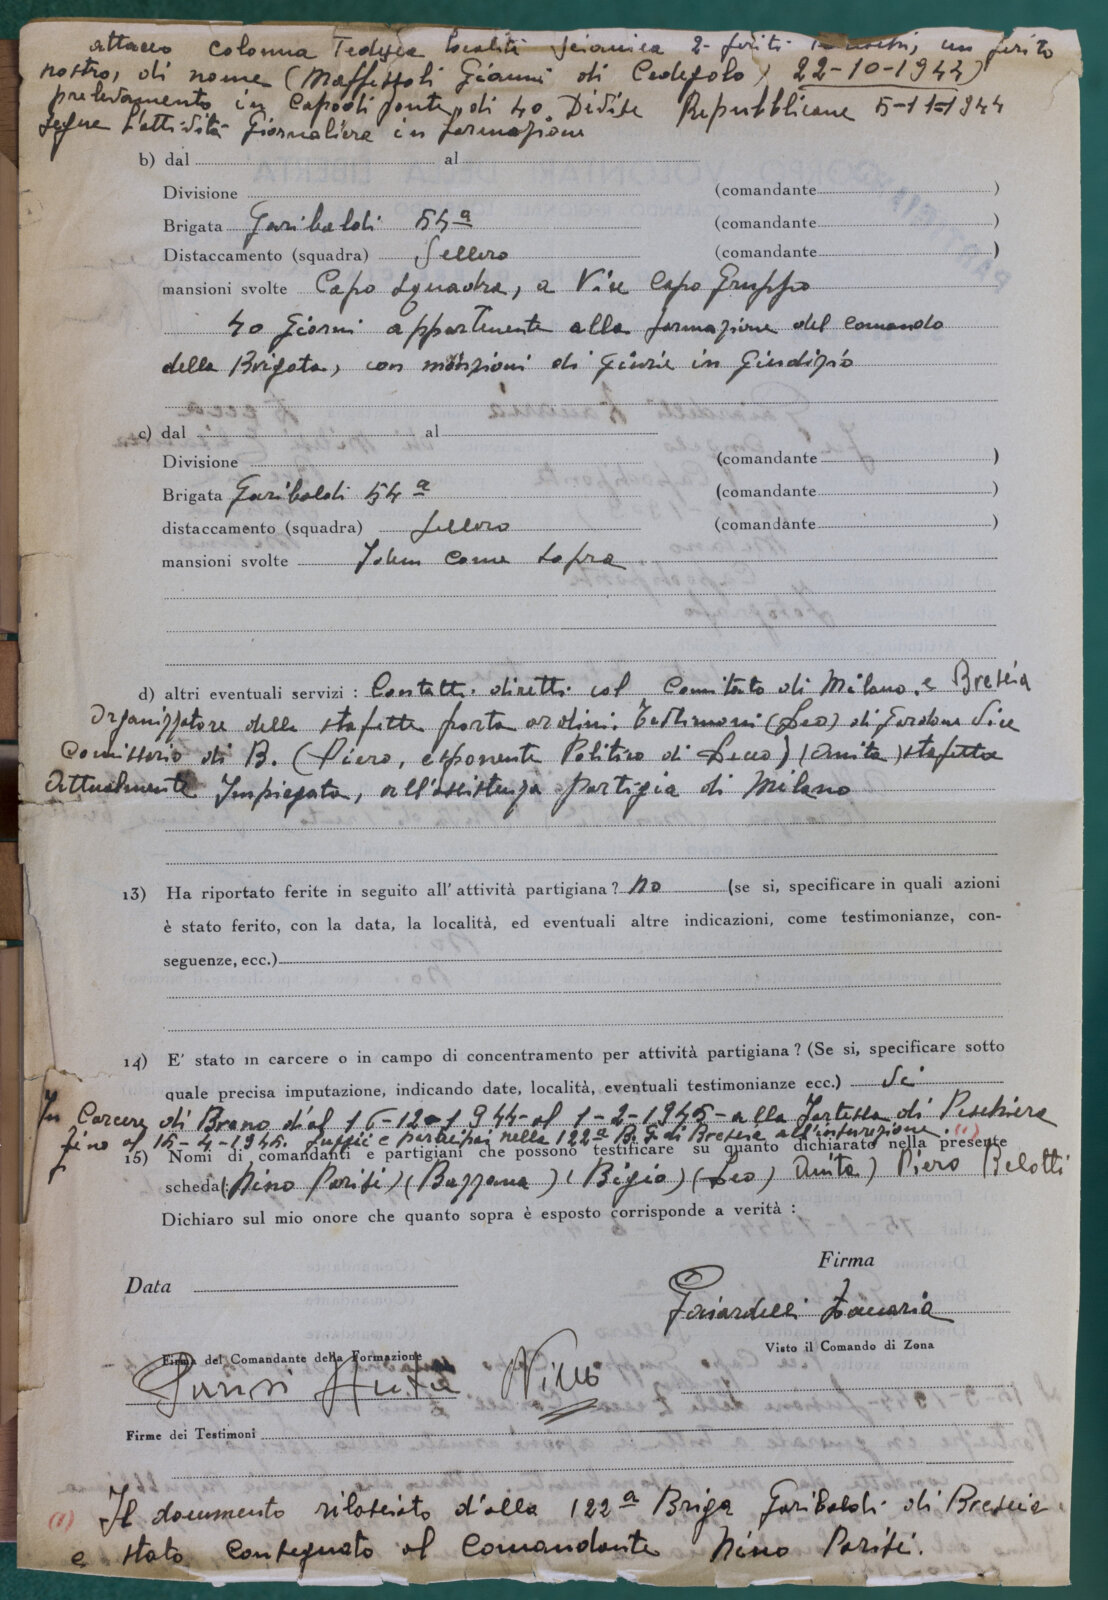 attacco colonna Tedesca località Scianica 2 feriti, un ferito
nostro, di nome (Maffessoli Gianni di Cedegolo) 22-10-1944)
prelevamento in Capodiponte di 40 Divise Repubblicane 5-11-1944
segue l'attività Giornaliera in formazione
b) dal al
Divisione (comandante )
Brigata Garibaldi 54ª (comandante )
Distaccamento (squadra) Sellero (comandante )
mansioni svolte Capo Squadra, a Vice Capo Gruppo
40 Giorni appartenente alla formazione del Comando
della Brigata, con mansioni di Giurie in Giudizio
c) dal al
Divisione (comandante )
Brigata Garibaldi 54ª (comandante )
distaccamento (squadra) Sellero (comandante )
mansioni svolte Idem come sopra
d) altri eventuali servizi : Contatti diretti col Comitato di Milano, e Brescia
Organizzatore delle staffette porta ordini. Testimoni (Leo) di Gardone Vice
Comissario di B. (Piero, esponente Politico di Lecco) (Anita) stafetta
Attualmente Impiegata, all'assistenza partigia di Milano
13) Ha riportato ferite in seguito all'attività partigiana ? No (se si, specificare in quali azioni
è stato ferito, con la data, la località, ed eventuali altre indicazioni, come testimonianze, con-
seguenze, ecc.)
14) E' stato in carcere o in campo di concentramento per attività partigiana ? (Se si, specificare sotto
quale precisa imputazione, indicando date, località, eventuali testimonianze ecc.) Si
In Carcere di Breno d'al 16-12-1944 al 1-2-1945 - alla Fortessa di Peschiera
fino al 15-4-1945. Fuggii e partecipai nella 122ª B. G. di Brescia all'insurezione. (1)
15) Nomi di comandanti e partigiani che possono testificare su quanto dichiarato nella presente
scheda: (Nino Parisi) (Bazzana) (Bigio) (Leo) Anita) Piero Belotti
Dichiaro sul mio onore che quanto sopra è esposto corrisponde a verità :
Firma
Data
Gaiardelli Zaccaria
Visto il Comando di Zona
Firma del Comandante della Formazione
Parisi Nino
Firme dei Testimoni
(1) Il documento rilasciato d'alla 122ª Briga Garibaldi di Brescia
e stato consegnato al Comandante Nino Parisi.